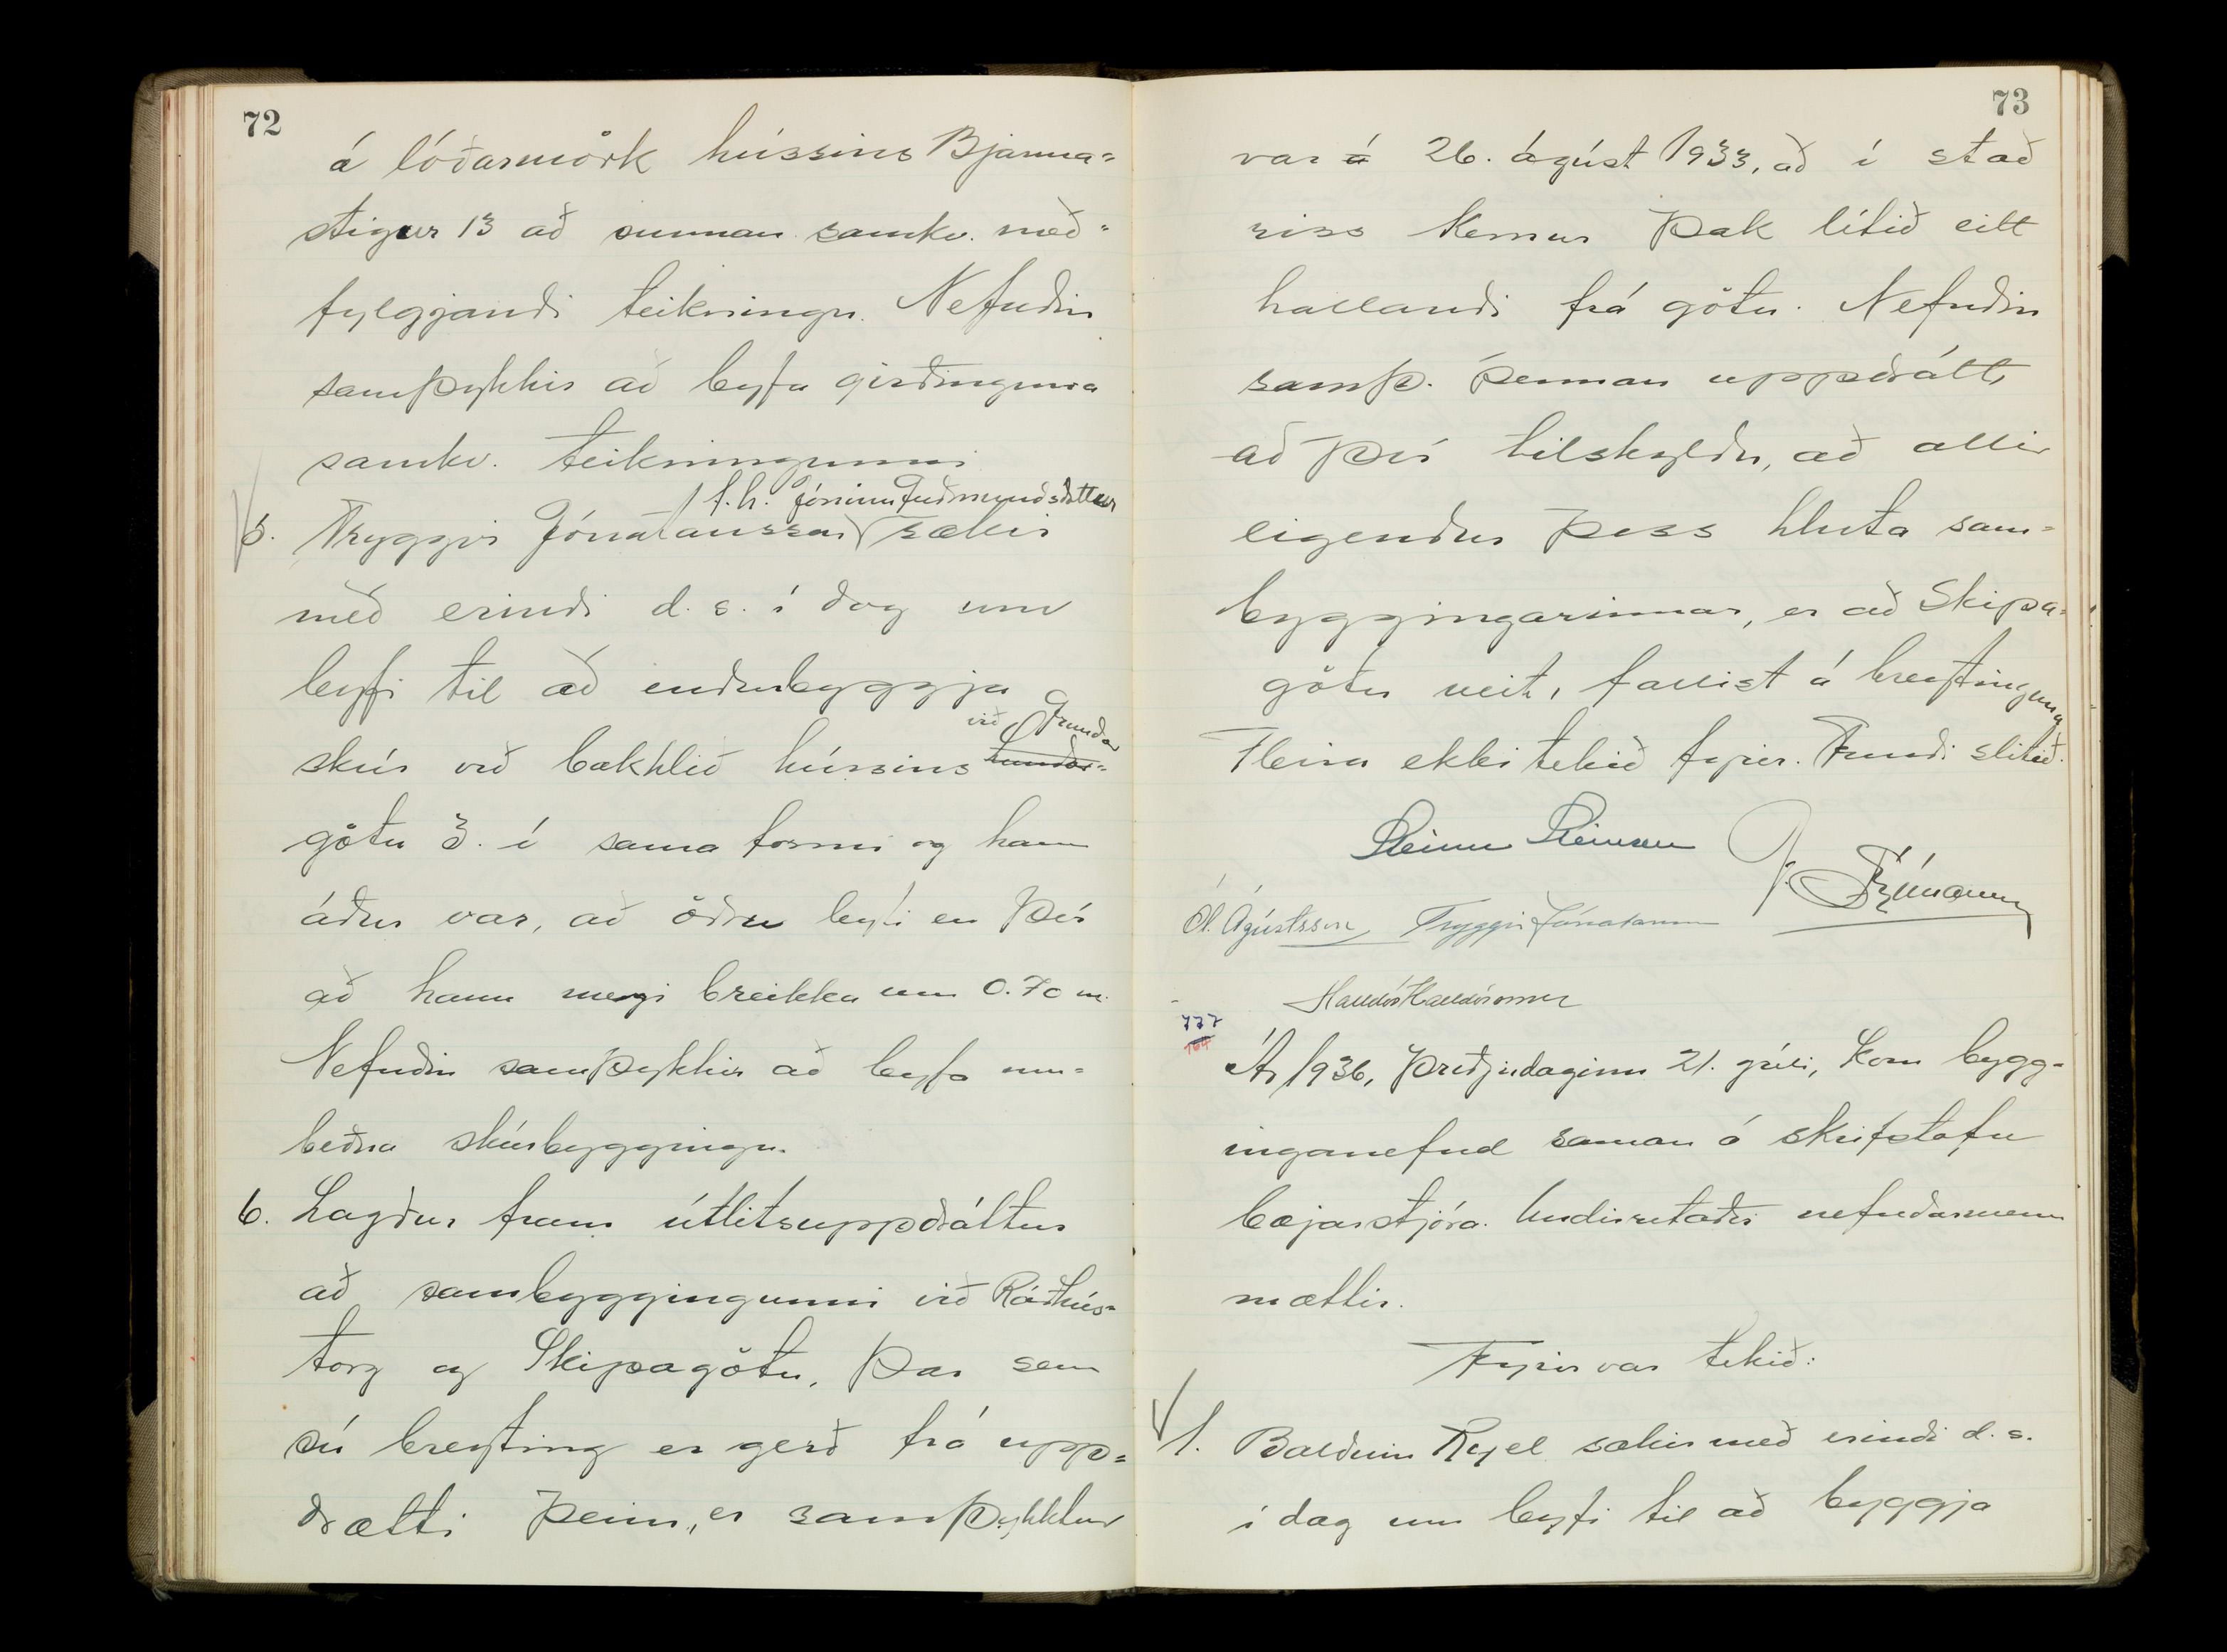 72
á lóðarmörk hússins Bjarma=
stígur 13 að sunnan samkv. með=
fylgjandi teikningu. Nefndin
samþykkir að leyfa girðinguna
samkv. teikningunni
f.h. Jónínu Guðmundsdóttur
5. Tryggvi Jónatansson sækir
með erindi d.s. í dag um
leyfi til að endurbyggja
við Grundar
skúr við bakhlið hússins Lundar=
götu 3. í sama formi og hann
áður var, að öðru leyti en því
að hann megi breikka um 0.70 m.
Nefndin samþykkir að leyfa um=
beðna skúrbyggingu.
6. Lagður fram útlitsuppdráttur
að sambyggingunni við Ráðhús=
torg og Skipagötu, þar sem
sú breyting er gerð frá upp=
drætti þeim, er samþykktur
73
var á 26. ágúst 1933, að í stað
riss kemur þak lítið eitt
hallandi frá götu. Nefndin
samþ. þennan uppdrátt,
að því tilskyldu, að allir
eigendur þess hluta sam=
byggingarinnar, er að Skipa=
götu veit, fallist á breytinguna
Fleira ekki tekið fyrir. Fundi slitið.
Steinn Steinsen
Ól. Ágústsson Tryggvi Jónatansson
Halldór Halldórsson
777
164
Ár 1936, þriðjudaginn 21. júlí, kom bygg-
inganefnd saman á skrifstofu
bæjarstjóra. Undirritaðir nefndarmenn
mættir.
Fyrir var tekið:
1. Balduin Ryel sækir með erindi d.s.
í dag um leyfi til að byggja